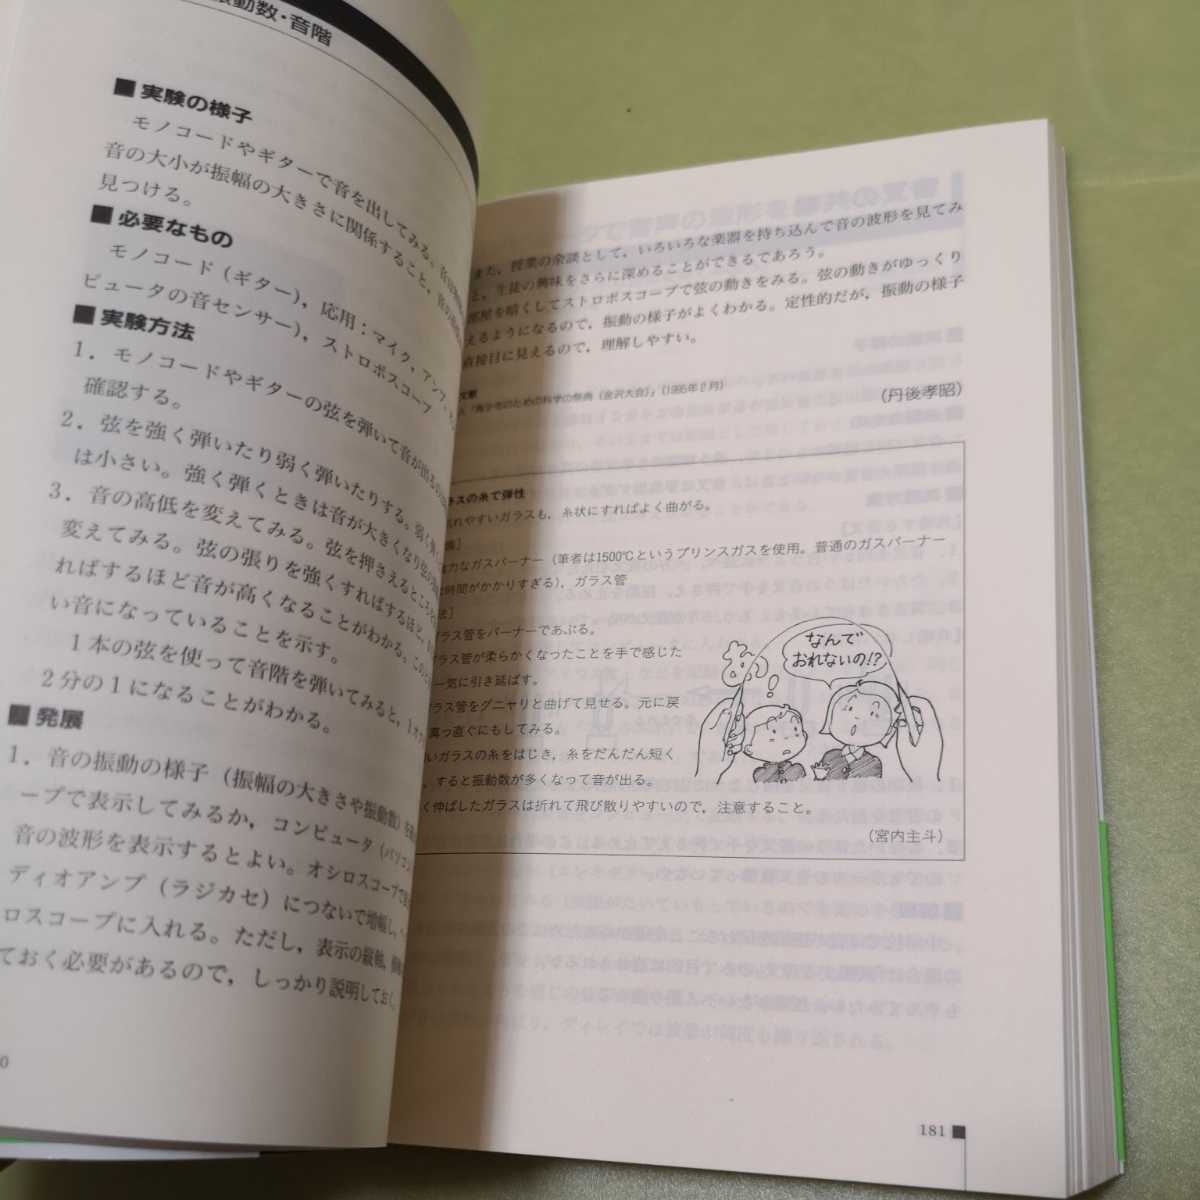 振動数・音階
■ 実験の様子
モノコードやギターで音を出してみる。
音の大小が振幅の大きさに関係すること，
見つける。
■ 必要なもの
モノコード（ギター），応用：マイク，アンプ
ピュータの音センサー），ストロボスコープ
■ 実験方法
1．モノコードやギターの弦を弾いて音が出る
確認する。
2．弦を強く弾いたり弱く弾いたりする。弱く
は小さい。強く弾くときは音が大きくなり弦の
3．音の高低を変えてみる。弦を押さえるところを
変えてみる。弦の張りを強くすればするほど，
ればするほど音が高くなることがわかる。この
い音になっていることを示す。
1本の弦を使って音階を弾いてみると，1オク
2分の1になることがわかる。
■ 発展
1．音の振動の様子（振幅の大きさや振動数）を
ープで表示してみるか，コンピュータ（パソコン
音の波形を表示するとよい。オシロスコープで
ディオアンプ（ラジカセ）につないで増幅し，
ロスコープに入れる。ただし，表示の縦軸，
ておく必要があるので，しっかり説明しておく
0
また，授業の余談として，いろいろな楽器を持ち込んで音の波形を見てみ
と，生徒の興味をさらに深めることができるであろう。
部屋を暗くしてストロボスコープで弦の動きをみる。弦の動きがゆっくり
えるようになるので，振動の様子がよくわかる。定性的だが，振動の様子
直接目に見えるので，理解しやすい。
文献
「青少年のための科学の祭典（金沢大会）」（1995年2月）
（丹後孝昭）
ラスの糸で弾性
れやすいガラスも，糸状にすればよく曲がる。
力なガスバーナー（筆者は1500℃というプリンスガスを使用。普通のガスバーナー
は時間がかかりすぎる），ガラス管
法］
ラス管をバーナーであぶる。
ラス管が柔らかくなったことを手で感じた
一気に引き延ばす。
ラス管をグニャリと曲げて見せる。元に戻
真っ直ぐにもしてみる。
いガラスの糸をはじき，糸をだんだん短く
，すると振動数が多くなって音が出る。
く伸ばしたガラスは折れて飛び散りやすいので，注意すること。
なんで
おれないの!?
（宮内主斗）
181